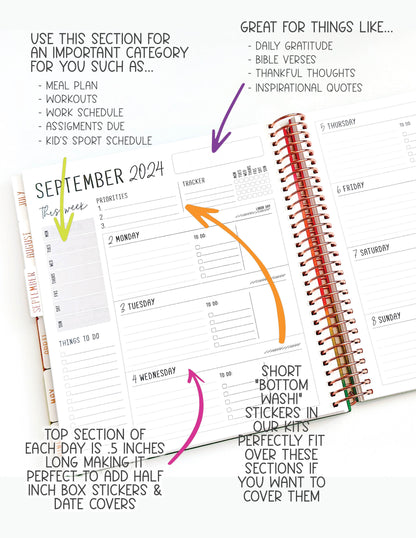 USE THIS SECTION FOR
AN IMPORTANT CATEGORY
FOR YOU SUCH AS...
- MEAL PLAN
- WORKOUTS
- WORK SCHEDULE
- ASSIGMENTS DUE
- KID'S SPORT SCHEDULE
GREAT FOR THINGS LIKE...
- DAILY GRATITUDE
- BIBLE VERSES
- THANKFUL THOUGHTS
- INSPIRATIONAL QUOTES
SEPTEMBER 2024
this week
PRIORITIES
1
2
3
TRACKER
MON
TUE
SUN
THINGS TO DO
2 MONDAY
LABOR DAY
TO DO:
3 TUESDAY
TO DO:
4 WEDNESDAY
TO DO:
5 THURSDAY
6 FRIDAY
7 SATURDAY
8 SUNDAY
JULY
AUGUST
SEPTEMBER
TOP SECTION OF
EACH DAY IS .5 INCHES
LONG MAKING IT
PERFECT-TO ADD HALF
INCH BOX STICKERS &
DATE COVERS
SHORT
"BOTTOM
WASHI"
STICKERS IN
OUR KITS
PERFECTLY FIT
OVER THESE
SECTIONS IF
YOU WANT TO
COVER THEM